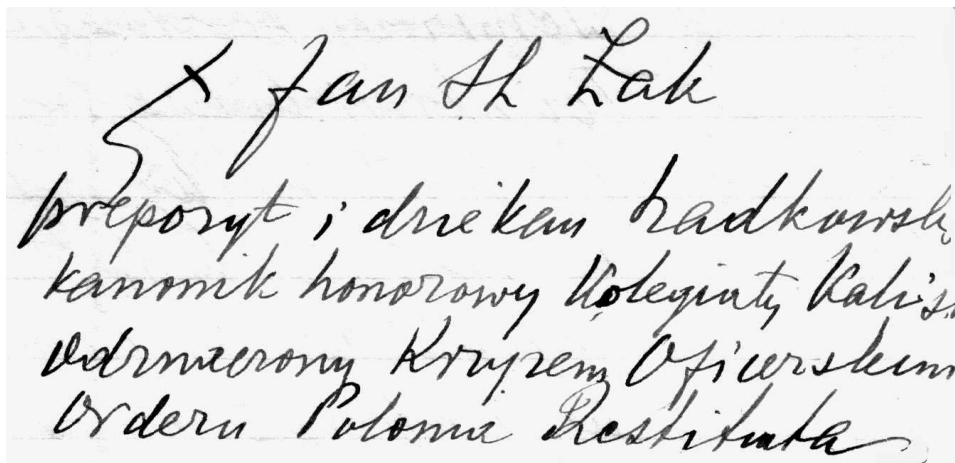 X Jan St Żak
prepozyt i dziekan radkowski,
kanonik honorowy Kolegiaty Kalis
odznaczony Krzyżem Oficerskim
Orderu Polonia Restituta